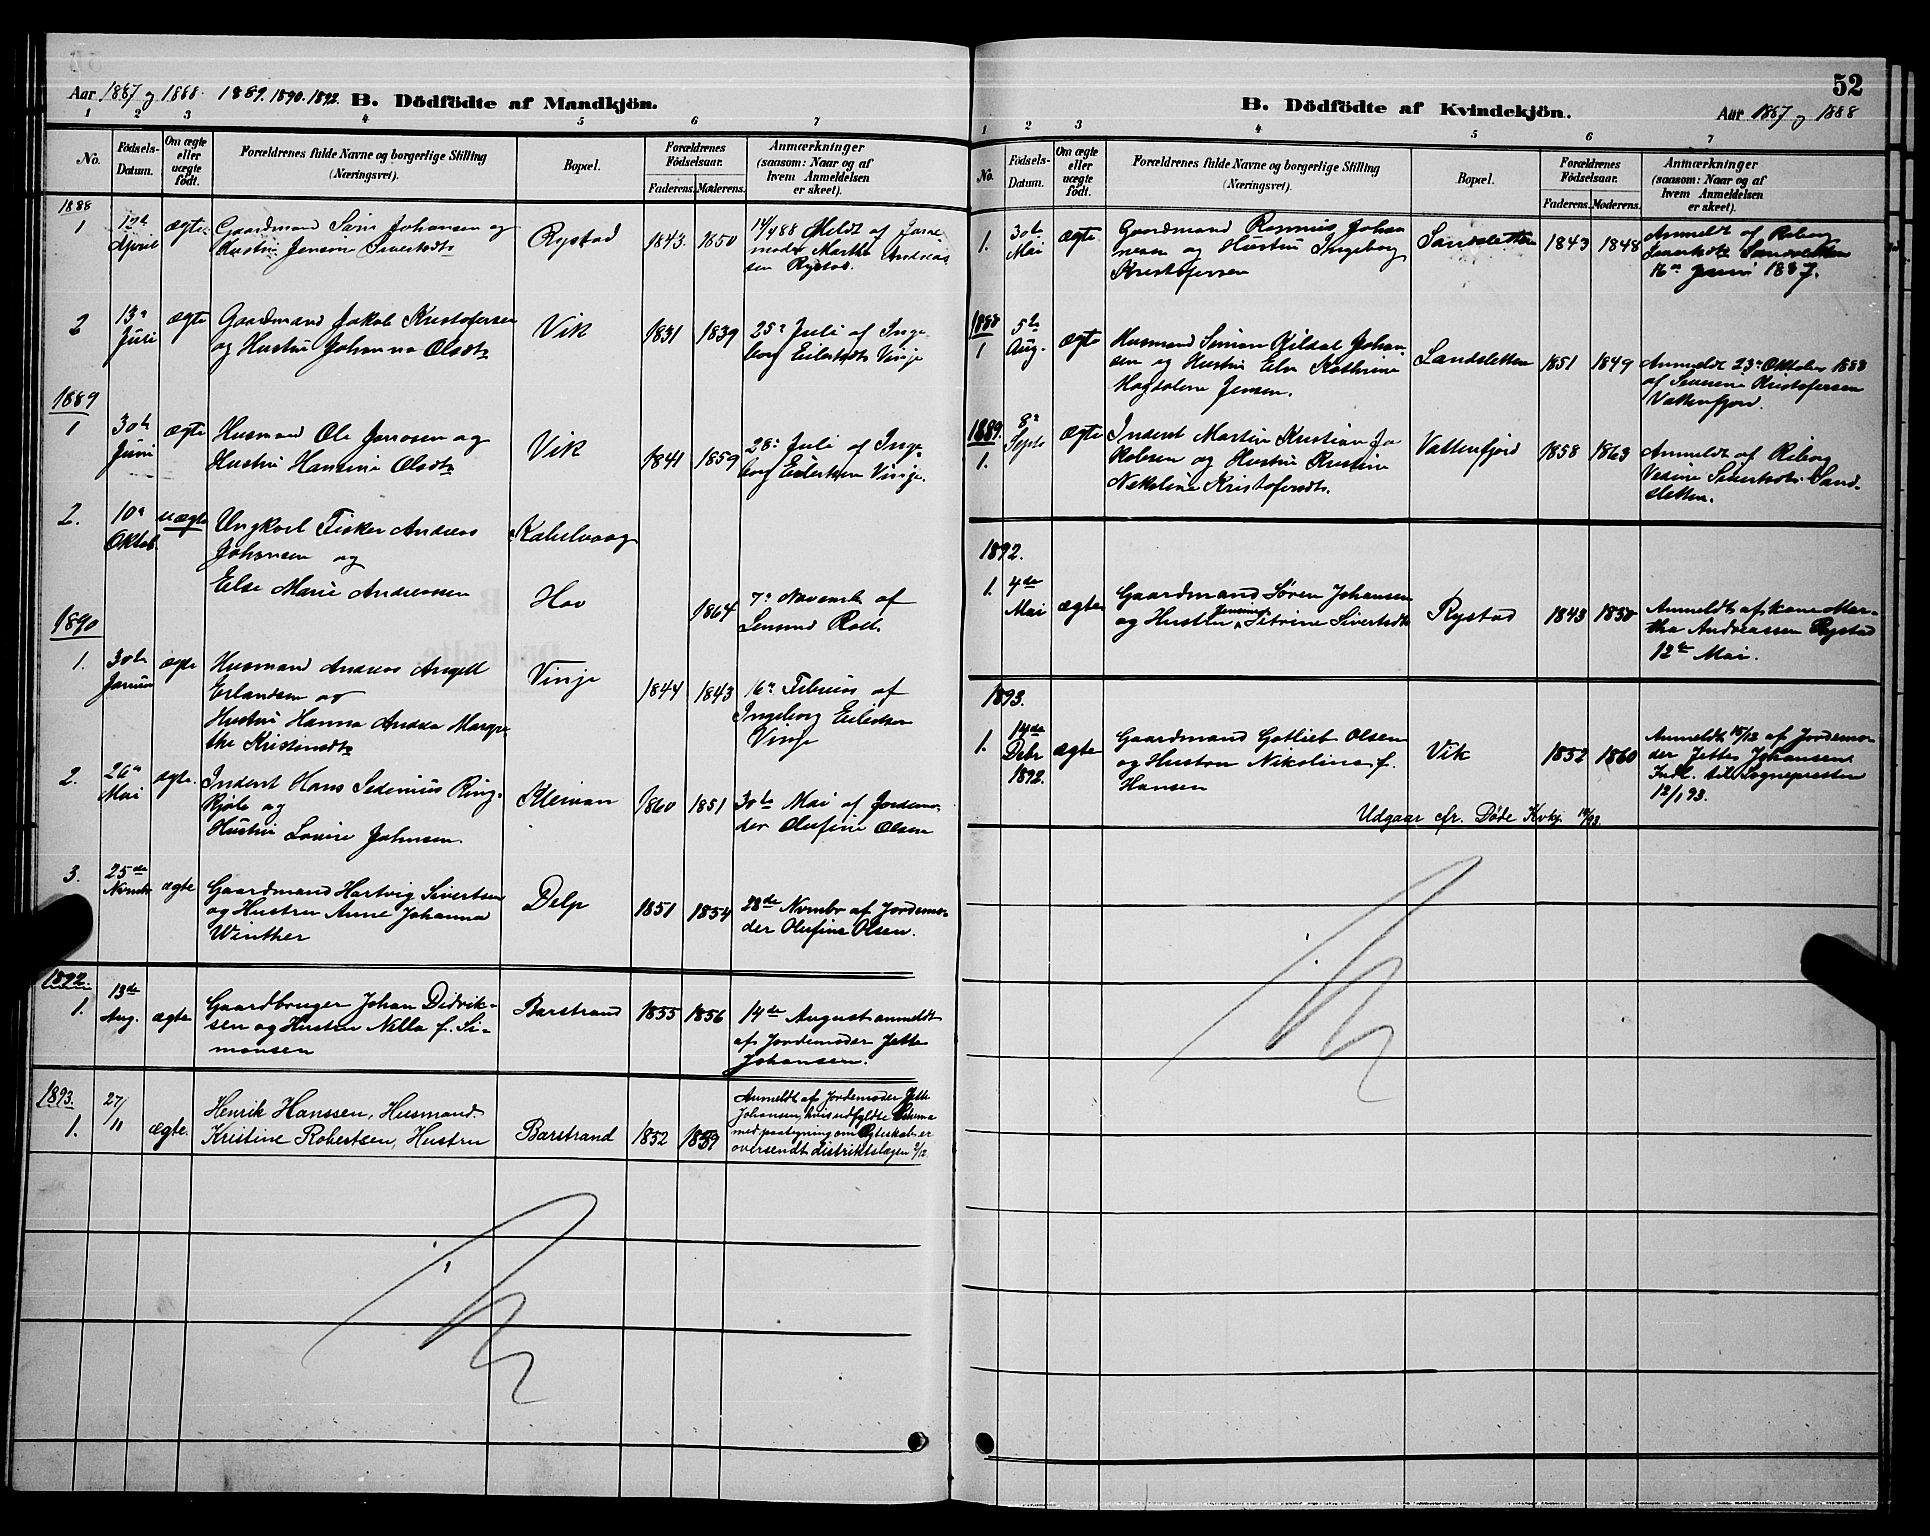 Aar 1887 og 1888. 1889. 1890. 1892. B. Dödfödte af Mandkjön.
1 2 3 4 5 6 7
No.
Födsels-Datum.
Om ægte eller uægte födt.
Forældrenes fulde Navne og borgerlige Stilling
(Næringsvei).
Bopæl.
Forældrenes Födselsaar.
Faderens. Moderens.
Anmærkninger
(saasom: Naar og af
hvem Anmeldelsen
er skeet).
1888
1 12te April ægte Gaardmand Sörn Johansen og
Hustru Jensine Sivertsdtr
Rystad 1843. 1850
14/4 88 Meldt af Jorde
moder Martha Andreas
sen Rystad.
2 13de Juli ægte Gaardmand Jakob Kristofersen
og Hustru Johanna Olsdtr
Vik 1831 1839
25de Juli af Inge
borg Eilertsdtr Vinje
1889
1 30te Juni ægte Husmand Ole Jonosen og
Hustru Hansine Olsdtr
Vik 1841 1859
28de Juli af Inge
borg Eilertsen Vinje.
2. 10de Oktob. uægte Ungkarl Fisker Andreas
Johansen og
Else Marie Andreassen
Kabelvaag
Hov 1864
7de Novembr af
Rod.
1890
1. 30te Januar ægte Husmand Andreas Angell
Erlandsen og
Hustru Hanna Andrea Margre
the Kristensdtr
Vinje 1844 1843
16de Februar af
Ingeborg Eilertsen
Vinje
2. 26de Mai ægte. Inderst Hans Sedenius Ring-
og
Hustru Lovise Johnsen.
Kleivan 1860 1851
30te Mai af Jordemo-
der Olufine Olsen
3. 25de Novmbr ægte Gaardmand Hartvig Sivertsen
og Hustru Anne Johanna
Winther
Delp 1851 1854
28de Novmbr af Jordemo-
der Olufine Olsen.
1892.
1. 13de Aug. ægte Gaardbruger Johan Didrik-
sen og Hustru Nella f. Si-
monsen
Barstrand 1855 1856
14de August anmeldt
af Jordemoder Jette
Johansen.
1893.
1. 27/11 ægte. Henrik Hanssen, Husmand
Kristine Robertsen, Hustru
Barstrand 1852 1859
Anmeldt af Jordemoder Jette
Johansen, hvis udfyldte Skema
med paategning om Ægteskab er
oversendt distriktslægen 2/12.
52
B. Dödfödte af Kvindekjön. Aar 1887 og 1888
1 2 3 4 5 6 7
No.
Födsels-Datum.
Om ægte eller uægte födt.
Forældrenes fulde Navne og borgerlige Stilling
(Næringsvei).
Bopæl.
Forældrenes Födselsaar.
Faderens. Moderens.
Anmærkninger
(saasom: Naar og af
hvem Anmeldelsen
er skeet).
1. 30te Mai ægte Gaardmand Rasmus Johan
nesen og Hustru Ingeborg
Kristofersen
Sandsletten 1843 1848
Anmeldt af Riborg
Sivertsdtr Sandsletten
16de Juni 1887.
1888
1 5te Aug. ægte Husmand Simon Kildal Johan-
sen og Hustru Eln Kathrine
Magdalene Jensen.
Sandsletten 1851 1849
Anmeldt 23de Oktober 1888
af Severine Kristofersen
Vattenfjord.
1889.
1. 8de Septr ægte Inderst Martin Kristian Ja
kobsen og Hustru Kristine
Nekoline Kristofersdtr.
Vattenfjord 1858 1863
Anmeldt af Riborg
Vesine Sivertsdtr Sand-
sletten.
1892.
1. 4de Mai ægte Gaardmand Søren Johansen
og Hustru Jensine Petrine Sivertsdtr
Rystad 1843 1850
Anmeldt af kone Mar-
tha Andreassen Rystad
12te Mai.
1893.
1. 14de Debr 1892. ægte Gaardmand Gotliet Olsen
og Hustru Nikoline f.
Hansen
Vik 1852 1860
Anmeldt 15/12 af Jordemo-
der Jette Johansen.
Indl. til Sognepresten
12/1 93.
Udgaar cfr. Døde Kvkj. 93